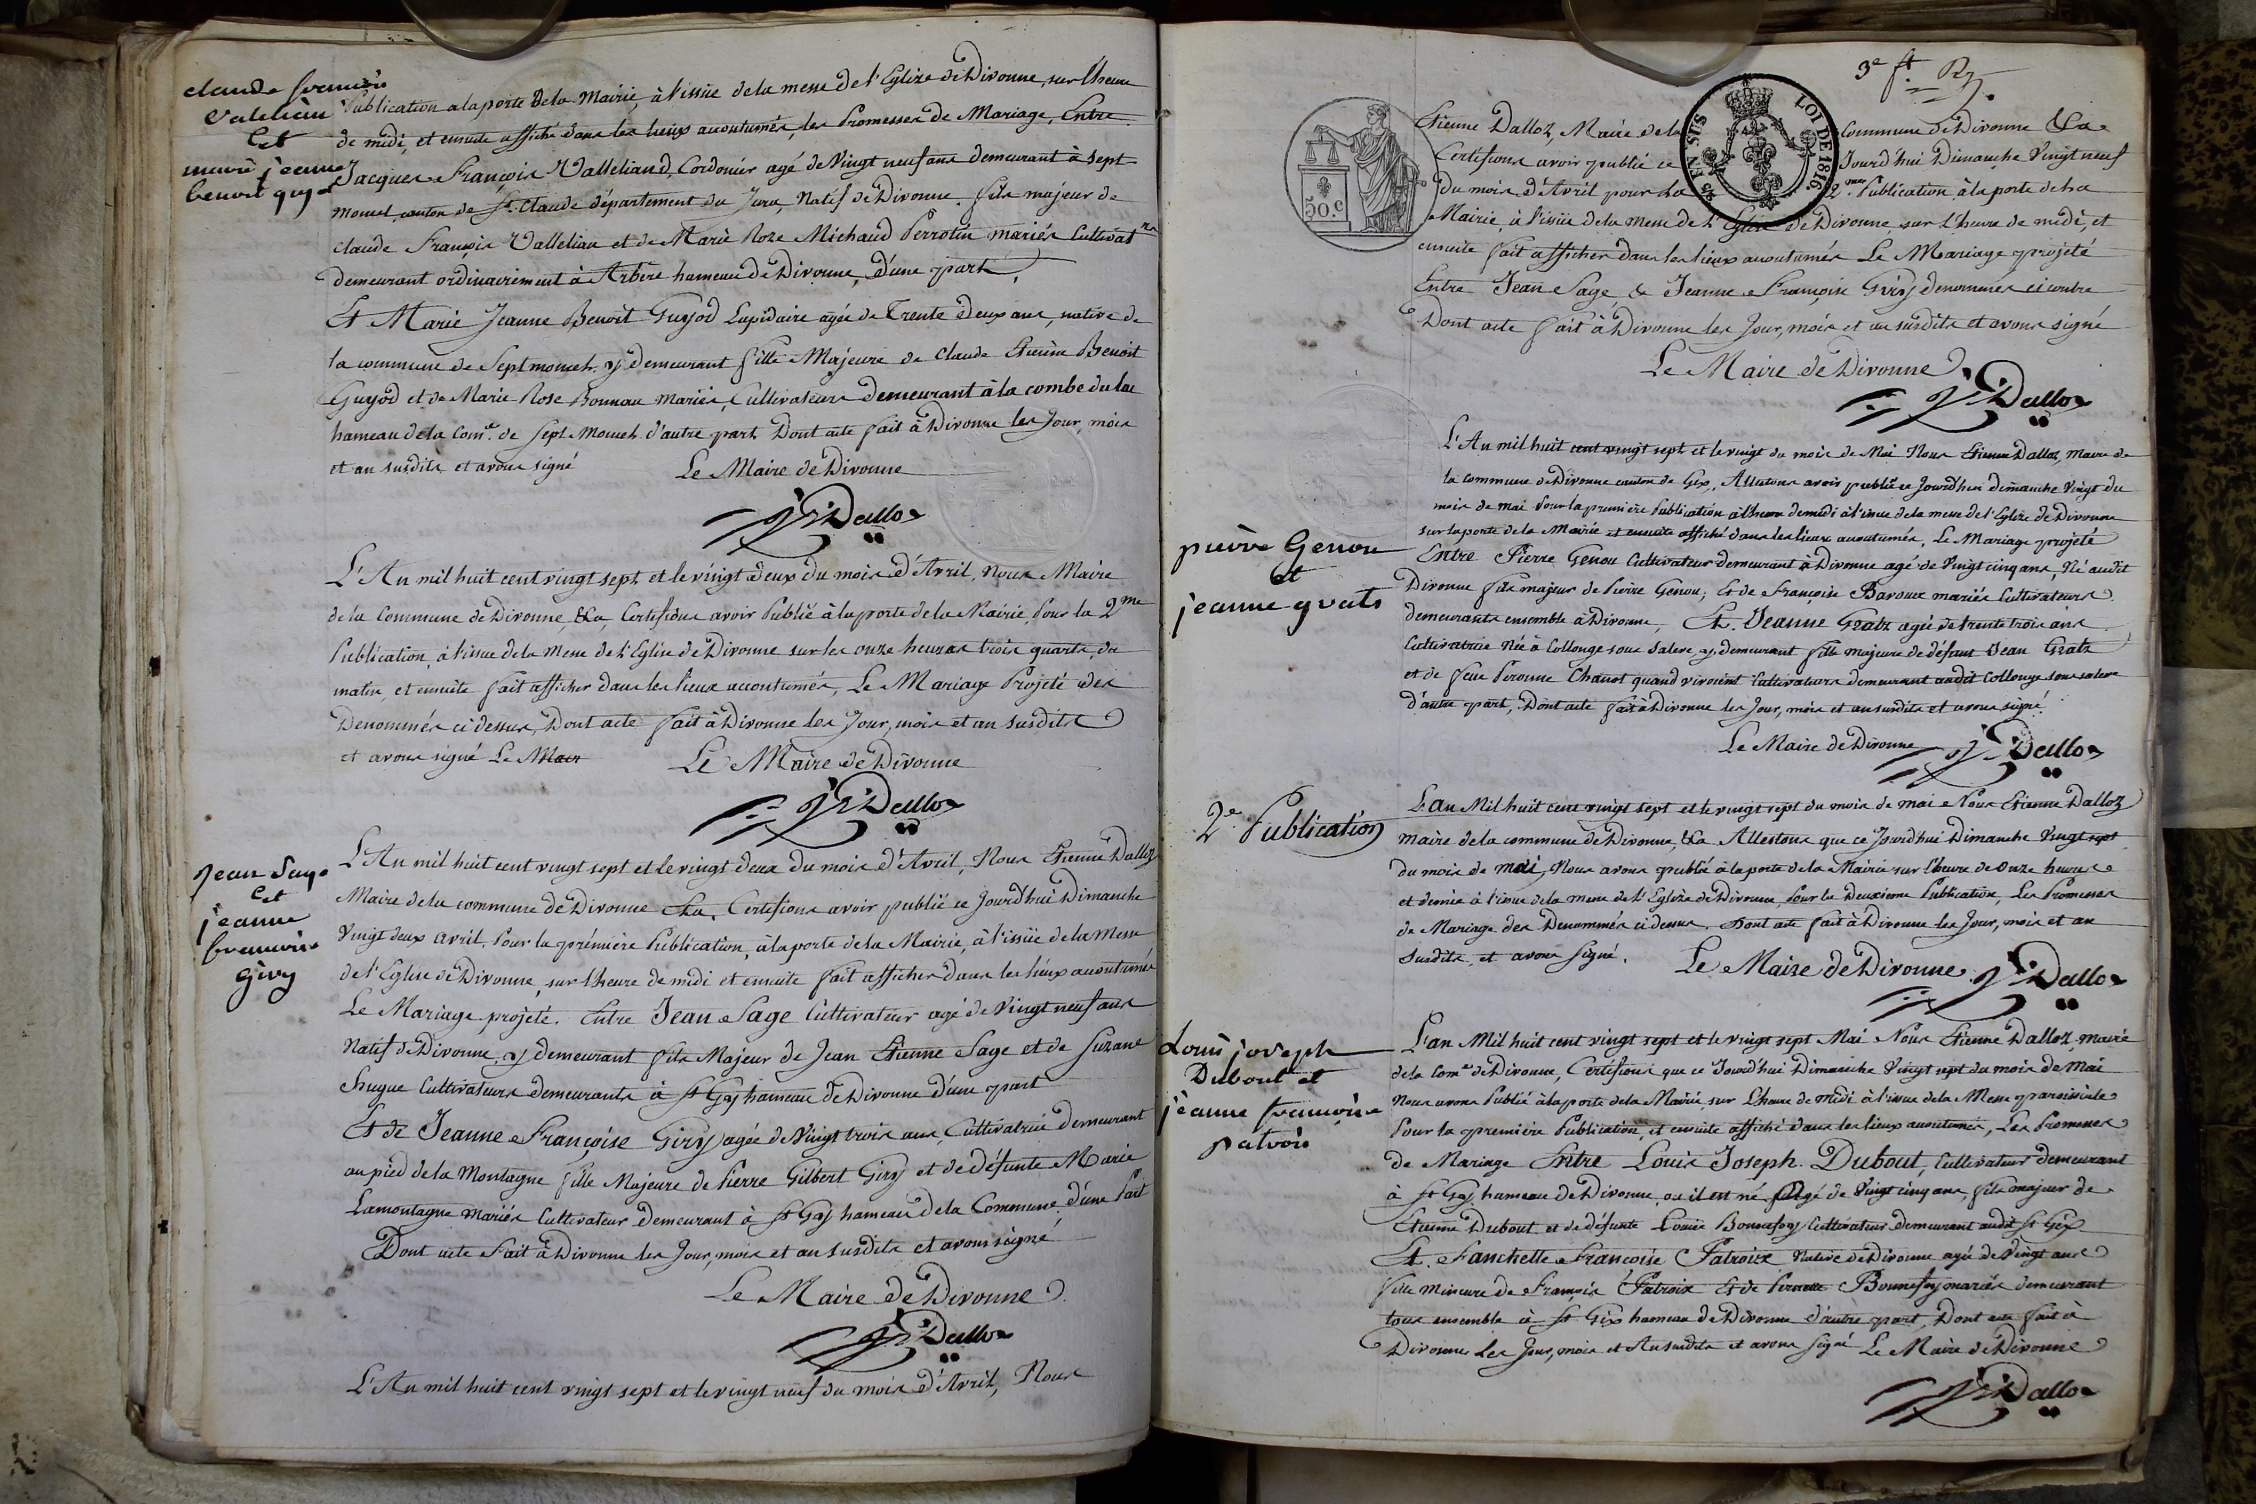 claude françois
Valeliân
Et
marie jeanne
benoit guyot
Publication a la porte de la Mairie, à l'issüe de la messe de l'Eglize de Divonne, sur l'heure
de midi, et ensuite affiché dans les lieux acoutumés, les Promesses de Mariage, Entre
Jacques François Valleliand, Cordonier agé de Vingt neuf ans demeurant à Sept
Moncel canton de St. Claude département du Jura, Natif de Divonne, fils majeur de
Claude François Vallelian et de Marie Roze Michaud Perrotin mariés Cultivatrs
demeurant ordinairement à Arbère hameau de Divonne, d'une part,
Et Marie Jeanne Benoit Guyod Lapidaire agée de Trente deux ans, native de
la commune de Septmoncel y demeurant fille Majeure de Claude Etienne Benoit
Guyod et de Marie Rose Bonnau mariés, Cultivateurs demeurant à la combe du lac
hameau de la Come. de Sept Moncel d'autre part Dont acte fait à Divonne les Jour, mois
et an susdits et avons signé Le Maire de Divonne
Dalloz
L'An mil huit cent vingt sept et le vingt deux du mois d'Avril, Nous Maire
de la Commune de Divonne, &a, Certifions avoir Publié à la porte de la Mairie Pour la 2me
Publication, à l'issue de la Messe de l'Eglise de Divonne sur les onze heures trois quarts, du
matin, et ensuite fait afficher dans les lieux accoutumés, Le Mariage Projeté des
Denommés ci dessus, Dont acte fait à Divonne les Jour, mois et an susdits
et avons signé Le Mair Le Maire de Divonne
Dalloz
Jean Sage
Et
jeanne
francoise
Giry
L'An mil huit cent vingt sept et le vingt deux du mois d'Avril, Nous Etienne Dalloz
Maire de la commune de Divonne &a, Certifions avoir publié ce Jourd'hui Dimanche
Vingt deux Avril, Pour la première Publication, à la porte de la Mairie, à l'issüe de la Messe
de l'Eglise de Divonne, sur l'heure de midi et ensuite fait afficher dans les lieux acoutumés
Le Mariage projeté. Entre Jean Sage Cultivateur agé de Vingt neuf ans
Natif de Divonne, y demeurant fils Majeur de Jean Etienne Sage et de Suzane
hugue Cultivateurs demeurants à St Gix hameau de Divonne d'une part
Et de Jeanne Françoise Giry agée de Vingt trois ans, Cultivatrice demeurant
au pied de la Montagne fille Majeure de Pierre Gilbert Giry et de défunte Marie
Lamontagne mariés Cultivateur demeurant à St Gix hameau de la Commune, d'une Part
Dont acte Fait à Divonne les Jour, mois et an susdits et avons signé
Le Maire de Divonne
Dalloz
L'An mil huit cent vingt sept et le vingt neuf du mois d'Avril, Nous
3e ft.
50.c
EN SUS
LOI DE 1816
Etienne Dalloz, Maire de la Commune de Divonne &a
Certifions avoir publié ce Jourd'hui Dimanche Vingt neuf
du mois d'Avril pour la 2me Publication à la porte de la
Mairie, à l'issüe de la Messe de l'Eglise de Divonne sur l'heure de midi, et
ensuite fait afficher dans les lieux acoutumés Le Mariage projeté
Entre Jean Sage, & Jeanne Françoise Giry denommés ci contre
Dont acte fait à Divonne les Jour, mois et an susdits et avons signé
Le Maire de Divonne
Dalloz
pierre Genou
et
jeanne grats
L'An mil huit cent vingt sept et le vingt du mois de Mai Nous Etienne Dalloz, Maire de
la commune de Divonne canton de Gex, Attestons avoir publié ce Jourd'hui dimanche Vingt du
mois de mai Pour la première Publication a l'heure de midi à l'issue de la messe de l'Eglize de Divonne
sur la porte de la Mairie et ensuite affiché dans les lieux acoutumés, Le Mariage projeté
Entre Pierre Genou Cultivateur demeurant à Divonne agé de Vingt cinq ans, Né audit
Divonne fils majeur de Pierre Genou, Et de Françoise Baroux mariés Cultivateurs
demeurants ensemble à Divonne, Et. Jeanne Gratz agée de trente trois ans
Cultivatrice Née à Collonge sous Saleve y demeurant fille majeure de défunt Jean Gratz
et de feue Peronne Chanot quand vivoient Cultivateurs demeurant audit Collonge sous saleve
d'autre part, Dont acte fait à Divonne les Jour, mois et an susdits et avons signé
Le Maire de Divonne Dalloz
2e Publication
L'an Mil huit cent vingt sept et le vingt sept du mois de mai Nous Etienne Dalloz
maire de la commune de Divonne, &a Attestons que ce Jourd'hui Dimanche Vingt sept
du mois de mai, Nous avons publié à la porte de la Mairie sur l'heure de Onze heures
et demie à l'issue de la messe de l'Eglize de Divonne, Pour la Deuxieme Publication, Les Promesses
de Mariage des Denommés ci dessus. Dont acte fait à Divonne les Jour, mois et an
susdits, et avons signé. Le Maire de Divonne Dalloz
Louis joseph
Dubout et
jeanne francoise
patroix
L'an Mil huit cent vingt sept et le vingt sept Mai Nous Etienne Dalloz, maire
de la Come. de Divonne, Certifions que ce Jourd'hui Dimanche Vingt sept du mois de Mai
Nous avons Publié à la porte de la Mairie, sur L'heure de midi à l'issue de la Messe paroissiale
Pour la première Publication, et ensuite affiché dans les lieux acoutumés, Les Promesses
de Mariage Entre Louis Joseph Dubout, Cultivateur demeurant
à St Gix hameau de Divonne, ou il est né, Agé de Vingt cinq ans, fils majeur de
Etienne Dubout et de défunte Louise Bonnefoy Cultivateur demeurant audit St Gix
Et. Fanchette Francoise Patroix Native de Divonne agée de Vingt ans
fille mineure de François Patroix Et de Pernette Bonnefoy mariés demeurant
tous ensemble à St Gix hameau de Divonne d'autre part, Dont acte fait à
Divonne les Jour, mois et An susdits et avons signé Le Maire de Divonne
Dalloz